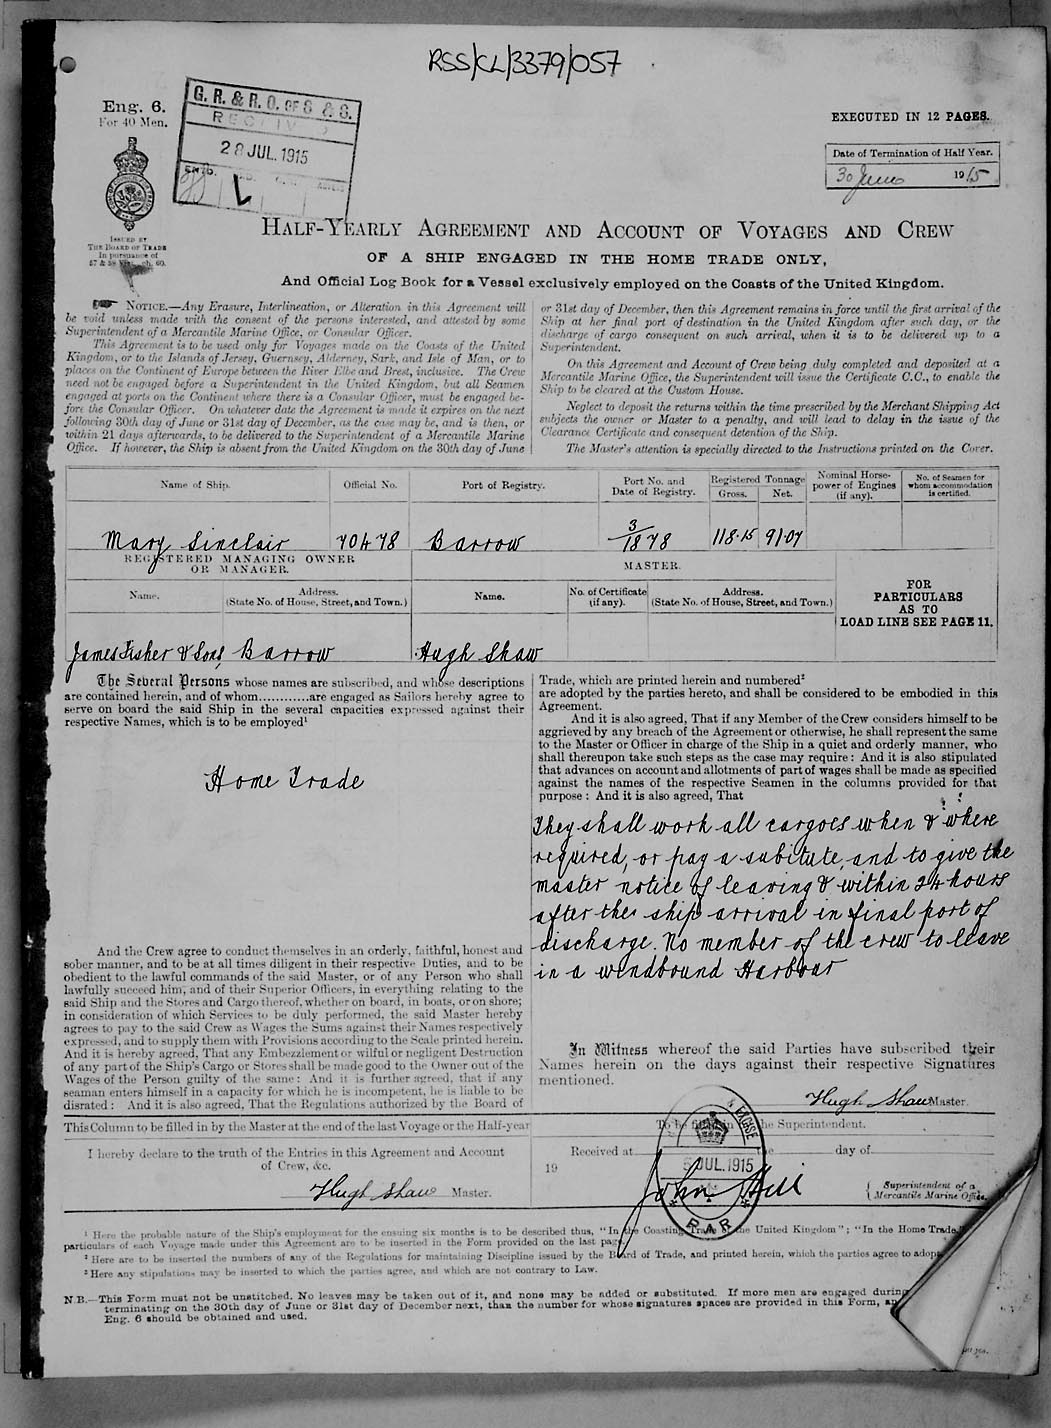 RSS/CL/3379/057
Eng. 6.
For 40 Men.
G. R. & R. O. OF S & S.
RECEIVED
28 JUL. 1915
EXECUTED IN 12 PAGES.
Date of Termination of Half Year.
30 June 1915
ISSUED BY
THE BOARD OF TRADE
In pursuance of
57 & 58 Vict., ch. 60.
HALF-YEARLY AGREEMENT AND ACCOUNT OF VOYAGES AND CREW
OF A SHIP ENGAGED IN THE HOME TRADE ONLY,
And Official Log Book for a Vessel exclusively employed on the Coasts of the United Kingdom.
NOTICE.—Any Erasure, Interlineation, or Alteration in this Agreement will
be void unless made with the consent of the persons interested, and attested by some
Superintendent of a Mercantile Marine Office, or Consular Officer.
This Agreement is to be used only for Voyages made on the Coasts of the United
Kingdom, or to the Islands of Jersey, Guernsey, Alderney, Sark, and Isle of Man, or to
places on the Continent of Europe between the River Elbe and Brest, inclusive. The Crew
need not be engaged before a Superintendent in the United Kingdom, but all Seamen
engaged at ports on the Continent where there is a Consular Officer, must be engaged be-
fore the Consular Officer. On whatever date the Agreement is made it expires on the next
following 30th day of June or 31st day of December, as the case may be, and is then, or
within 21 days afterwards, to be delivered to the Superintendent of a Mercantile Marine
Office. If however, the Ship is absent from the United Kingdom on the 30th day of June
or 31st day of December, then this Agreement remains in force until the first arrival of the
Ship at her final port of destination in the United Kingdom after such day, or the
discharge of cargo consequent on such arrival, when it is to be delivered up to a
Superintendent.
On this Agreement and Account of Crew being duly completed and deposited at a
Mercantile Marine Office, the Superintendent will issue the Certificate C.C., to enable the
Ship to be cleared at the Custom House.
Neglect to deposit the returns within the time prescribed by the Merchant Shipping Act
subjects the owner or Master to a penalty, and will lead to delay in the issue of the
Clearance Certificate and consequent detention of the Ship.
The Master's attention is specially directed to the Instructions printed on the Cover.
Name of Ship. Official No. Port of Registry. Port No. and Date of Registry. Registered Tonnage Gross. Net. Nominal Horse-power of Engines (if any). No. of Seamen for whom accommodation is certified.
Mary Sinclair 70478 Barrow 3/1878 118.15 91.07
REGISTERED MANAGING OWNER
OR MANAGER.
MASTER.
Name. Address. (State No. of House, Street, and Town.) Name. No. of Certificate (if any). Address. (State No. of House, Street, and Town.)
FOR
PARTICULARS
AS TO
LOAD LINE SEE PAGE 11.
James Fisher & Sons, Barrow Hugh Shaw
The Several Persons whose names are subscribed, and whose descriptions
are contained herein, and of whom............are engaged as Sailors hereby agree to
serve on board the said Ship in the several capacities expressed against their
respective Names, which is to be employed¹
Home Trade
And the Crew agree to conduct themselves in an orderly, faithful, honest and
sober manner, and to be at all times diligent in their respective Duties, and to be
obedient to the lawful commands of the said Master, or of any Person who shall
lawfully succeed him, and of their Superior Officers, in everything relating to the
said Ship and the Stores and Cargo thereof, whether on board, in boats, or on shore;
in consideration of which Services to be duly performed, the said Master hereby
agrees to pay to the said Crew as Wages the Sums against their Names respectively
expressed, and to supply them with Provisions according to the Scale printed herein.
And it is hereby agreed, That any Embezzlement or wilful or negligent Destruction
of any part of the Ship's Cargo or Stores shall be made good to the Owner out of the
Wages of the Person guilty of the same: And it is further agreed, that if any
seaman enters himself in a capacity for which he is incompetent, he is liable to be
disrated: And it is also agreed, That the Regulations authorized by the Board of
Trade, which are printed herein and numbered²
are adopted by the parties hereto, and shall be considered to be embodied in this
Agreement.
And it is also agreed, That if any Member of the Crew considers himself to be
aggrieved by any breach of the Agreement or otherwise, he shall represent the same
to the Master or Officer in charge of the Ship in a quiet and orderly manner, who
shall thereupon take such steps as the case may require: And it is also stipulated
that advances on account and allotments of part of wages shall be made as specified
against the names of the respective Seamen in the columns provided for that
purpose: And it is also agreed, That
They shall work all cargoes when & where
required, or pay a subitute, and to give the
master notice of leaving & within 24 hours
after the ship arrival in final port of
discharge. No member of the crew to leave
in a windbound Harbour
In Witness whereof the said Parties have subscribed their
Names herein on the days against their respective Signatures
mentioned.
Hugh Shaw Master.
This Column to be filled in by the Master at the end of the last Voyage or the Half-year
I hereby declare to the truth of the Entries in this Agreement and Account
of Crew, &c.
Hugh Shaw Master.
To be filled in the Superintendent.
Received at the day of
19
JUL. 1915
BAR
John Hill
Superintendent of a
Mercantile Marine Office.
¹ Here the probable nature of the Ship's employment for the ensuing six months is to be described thus, "In the Coasting Trade of the United Kingdom"; "In the Home Trade."
particulars of each Voyage made under this Agreement are to be inserted in the Form provided on the last page.
² Here are to be inserted the numbers of any of the Regulations for maintaining Discipline issued by the Board of Trade, and printed herein, which the parties agree to adopt
³ Here any stipulations may be inserted to which the parties agree, and which are not contrary to Law.
N.B.—This Form must not be unstitched. No leaves may be taken out of it, and none may be added or substituted. If more men are engaged during
terminating on the 30th day of June or 31st day of December next, than the number for whose signatures spaces are provided in this Form, an
Eng. 6 should be obtained and used.